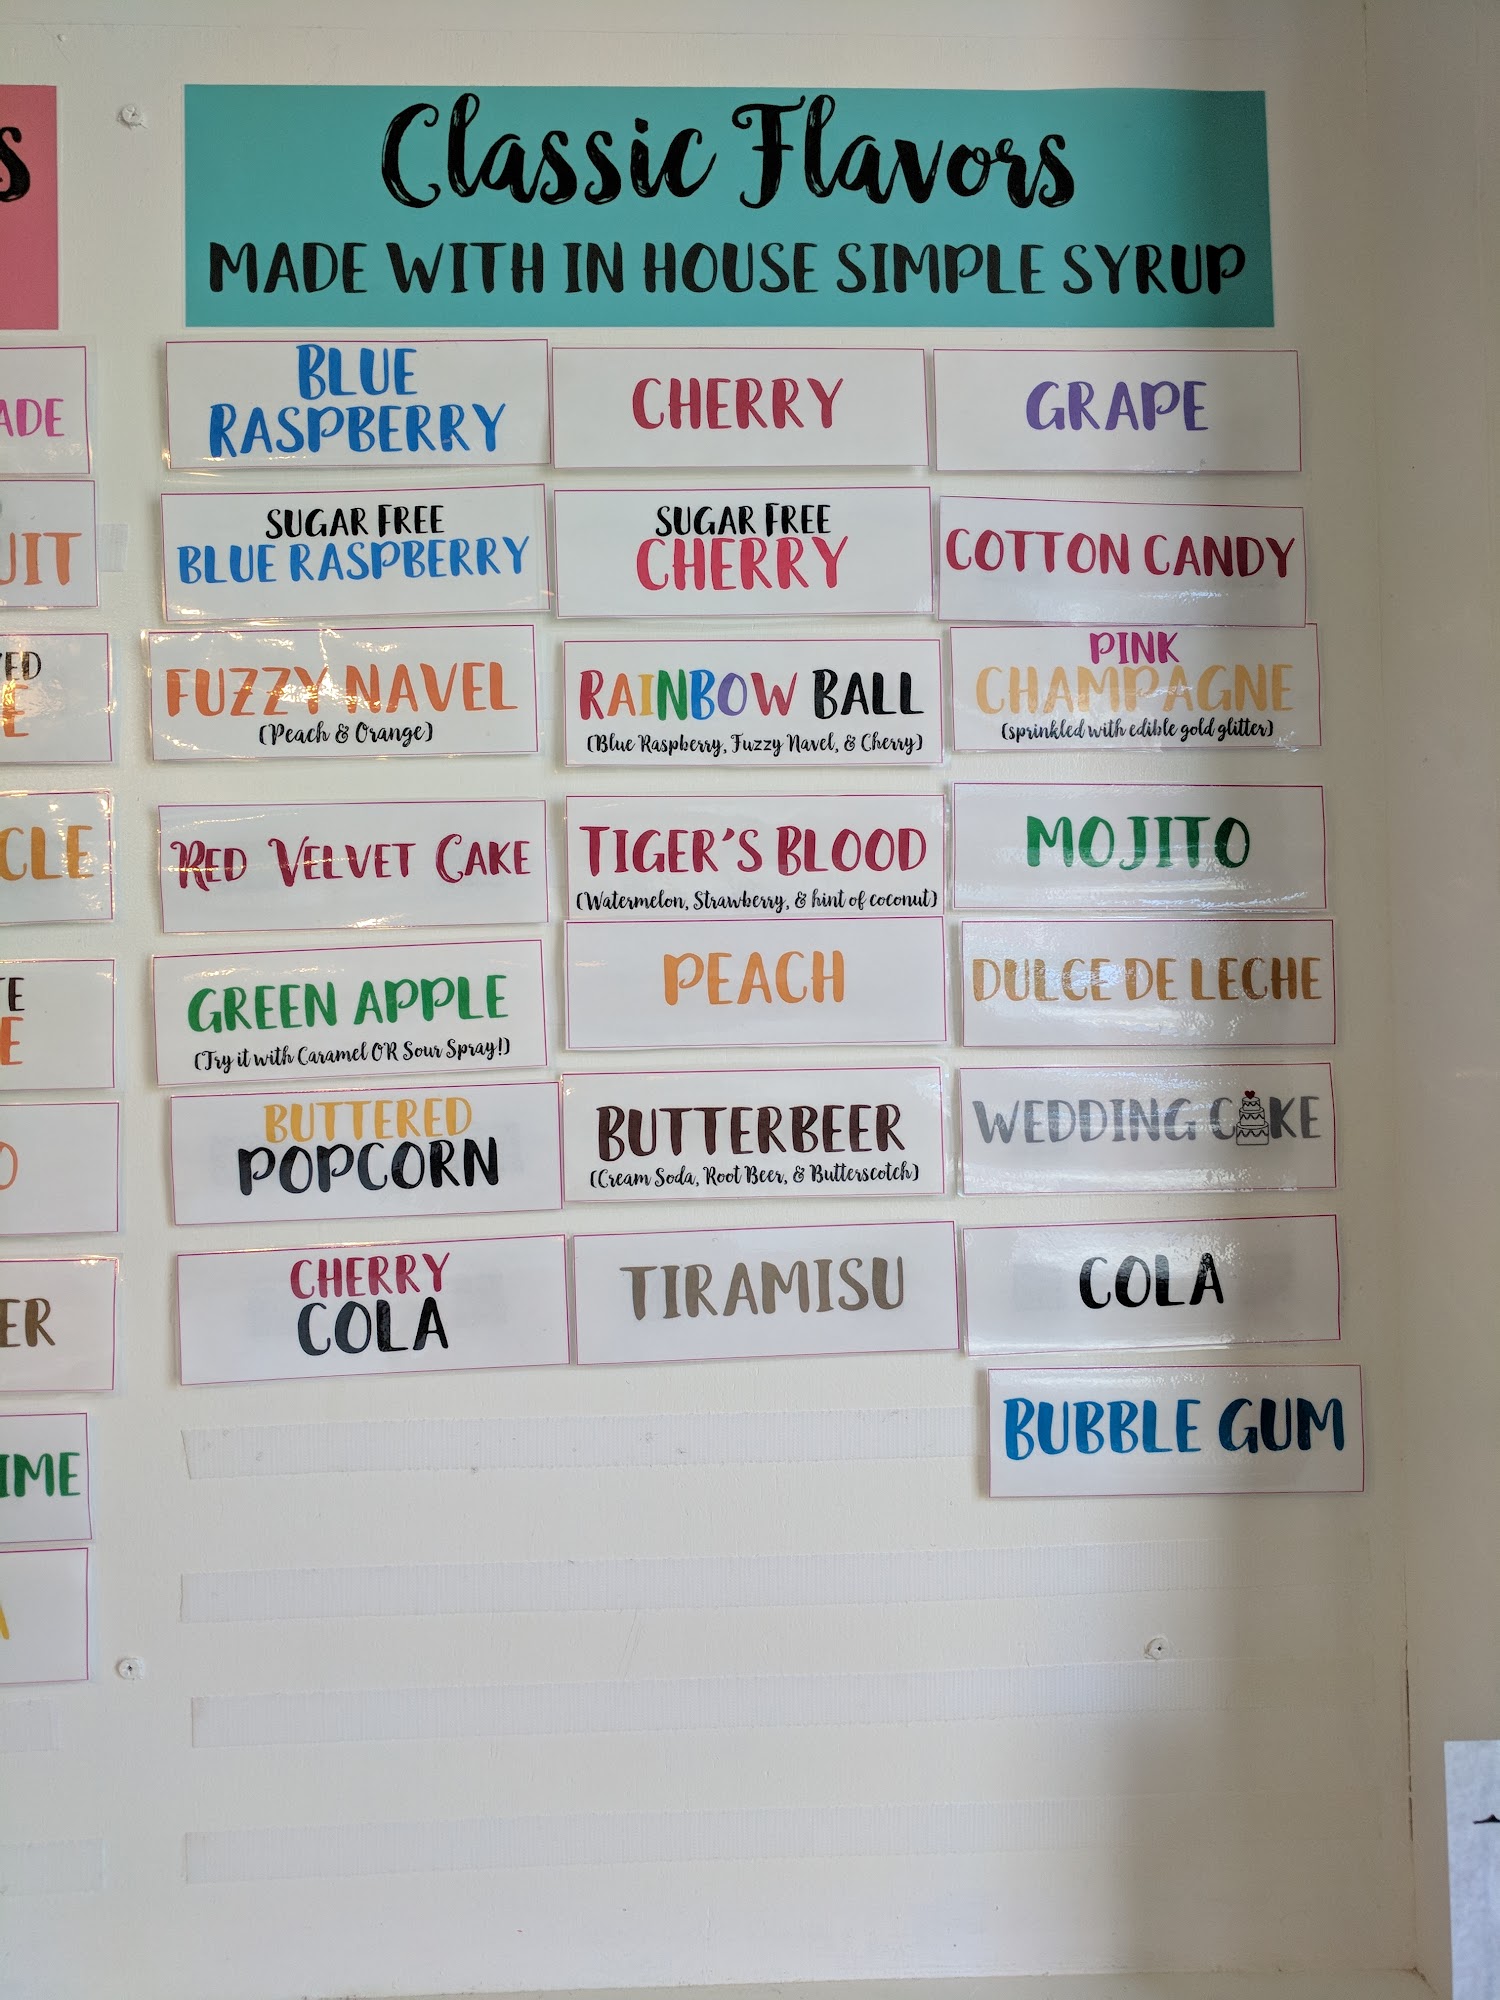 Classic Flavors
MADE WITH IN HOUSE SIMPLE SYRUP
BLUE
RASPBERRY
CHERRY
GRAPE
SUGAR FREE
BLUE RASPBERRY
SUGAR FREE
CHERRY
COTTON CANDY
FUZZY NAVEL
(Peach & Orange)
RAINBOW BALL
(Blue Raspberry, Fuzzy Navel, & Cherry)
PINK
CHAMPAGNE
(sprinkled with edible gold glitter)
RED VELVET CAKE
TIGER'S BLOOD
(Watermelon, Strawberry, & hint of coconut)
MOJITO
GREEN APPLE
(Try it with Caramel OR Sour Spray!)
PEACH
DULCE DE LECHE
BUTTERED
POPCORN
BUTTERBEER
(Cream Soda, Root Beer, & Butterscotch)
WEDDING CAKE
CHERRY
COLA
TIRAMISU
COLA
BUBBLE GUM